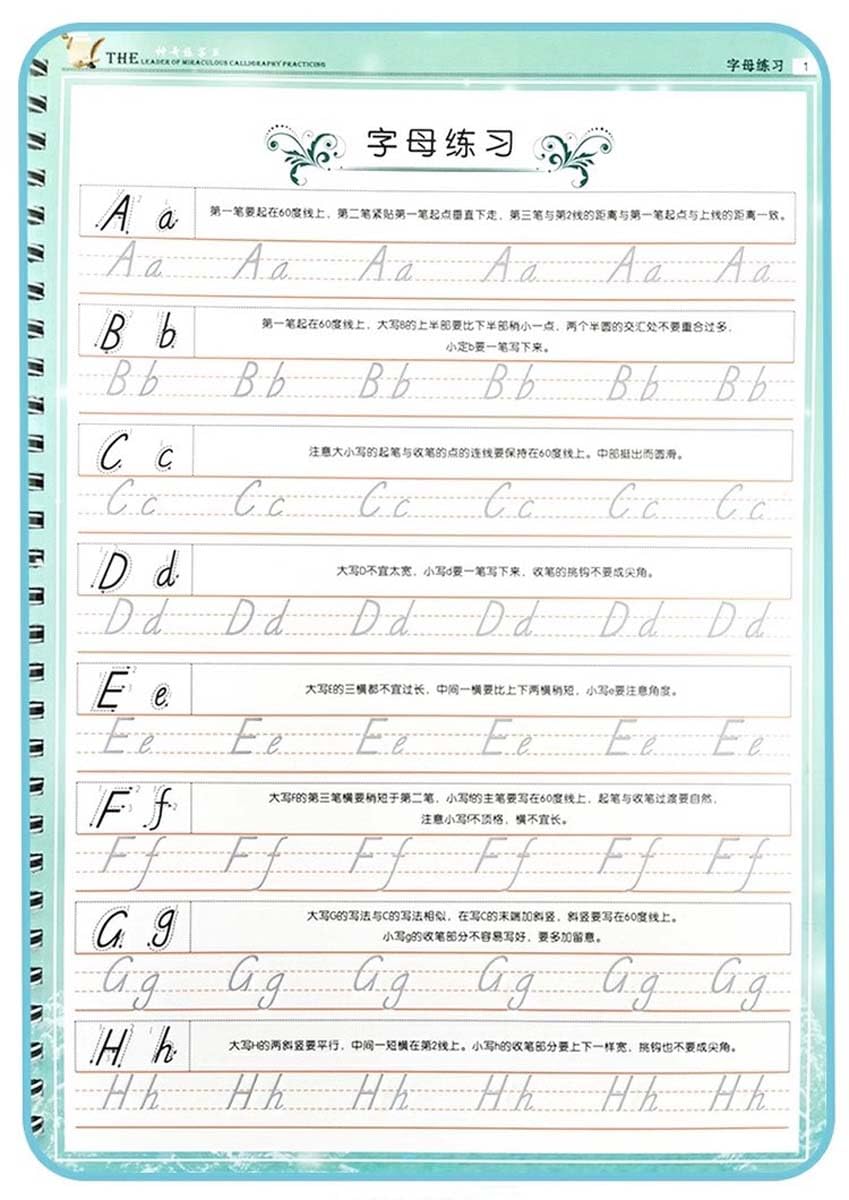 THE
LEADER OF MIRACULOUS CALLIGRAPHY PRACTICING
字母练习 1
字母练习
A a
第一笔要起在60度线上，第二笔紧贴第一笔起点垂直下走，第三笔与第2线的距离与第一笔起点与上线的距离一致。
Aa Aa Aa Aa Aa Aa
B b
第一笔起在60度线上，大写B的上半部要比下半部稍小一点，两个半圆的交汇处不要重合过多，
小定b要一笔写下来。
Bb Bb Bb Bb Bb Bb
C c
注意大小写的起笔与收笔的点的连线要保持在60度线上。中部挺出而圆滑。
Cc Cc Cc Cc Cc Cc
D d
大写D不宜太宽，小写d要一笔写下来，收笔的挑钩不要成尖角。
Dd Dd Dd Dd Dd Dd
E e
大写E的三横都不宜过长，中间一横要比上下两横稍短，小写e要注意角度。
Ee Ee Ee Ee Ee Ee
F f
大写F的第三笔横要稍短于第二笔，小写f的主笔要写在60度线上，起笔与收笔过渡要自然，
注意小写f不顶格，横不宜长。
Ff Ff Ff Ff Ff Ff
G g
大写G的写法与C的写法相似，在写C的末端加斜竖，斜竖要写在60度线上。
小写g的收笔部分不容易写好，要多加留意。
Gg Gg Gg Gg Gg Gg
H h
大写H的两斜竖要平行，中间一短横在第2线上。小写h的收笔部分要上下一样宽，挑钩也不要成尖角。
Hh Hh Hh Hh Hh Hh